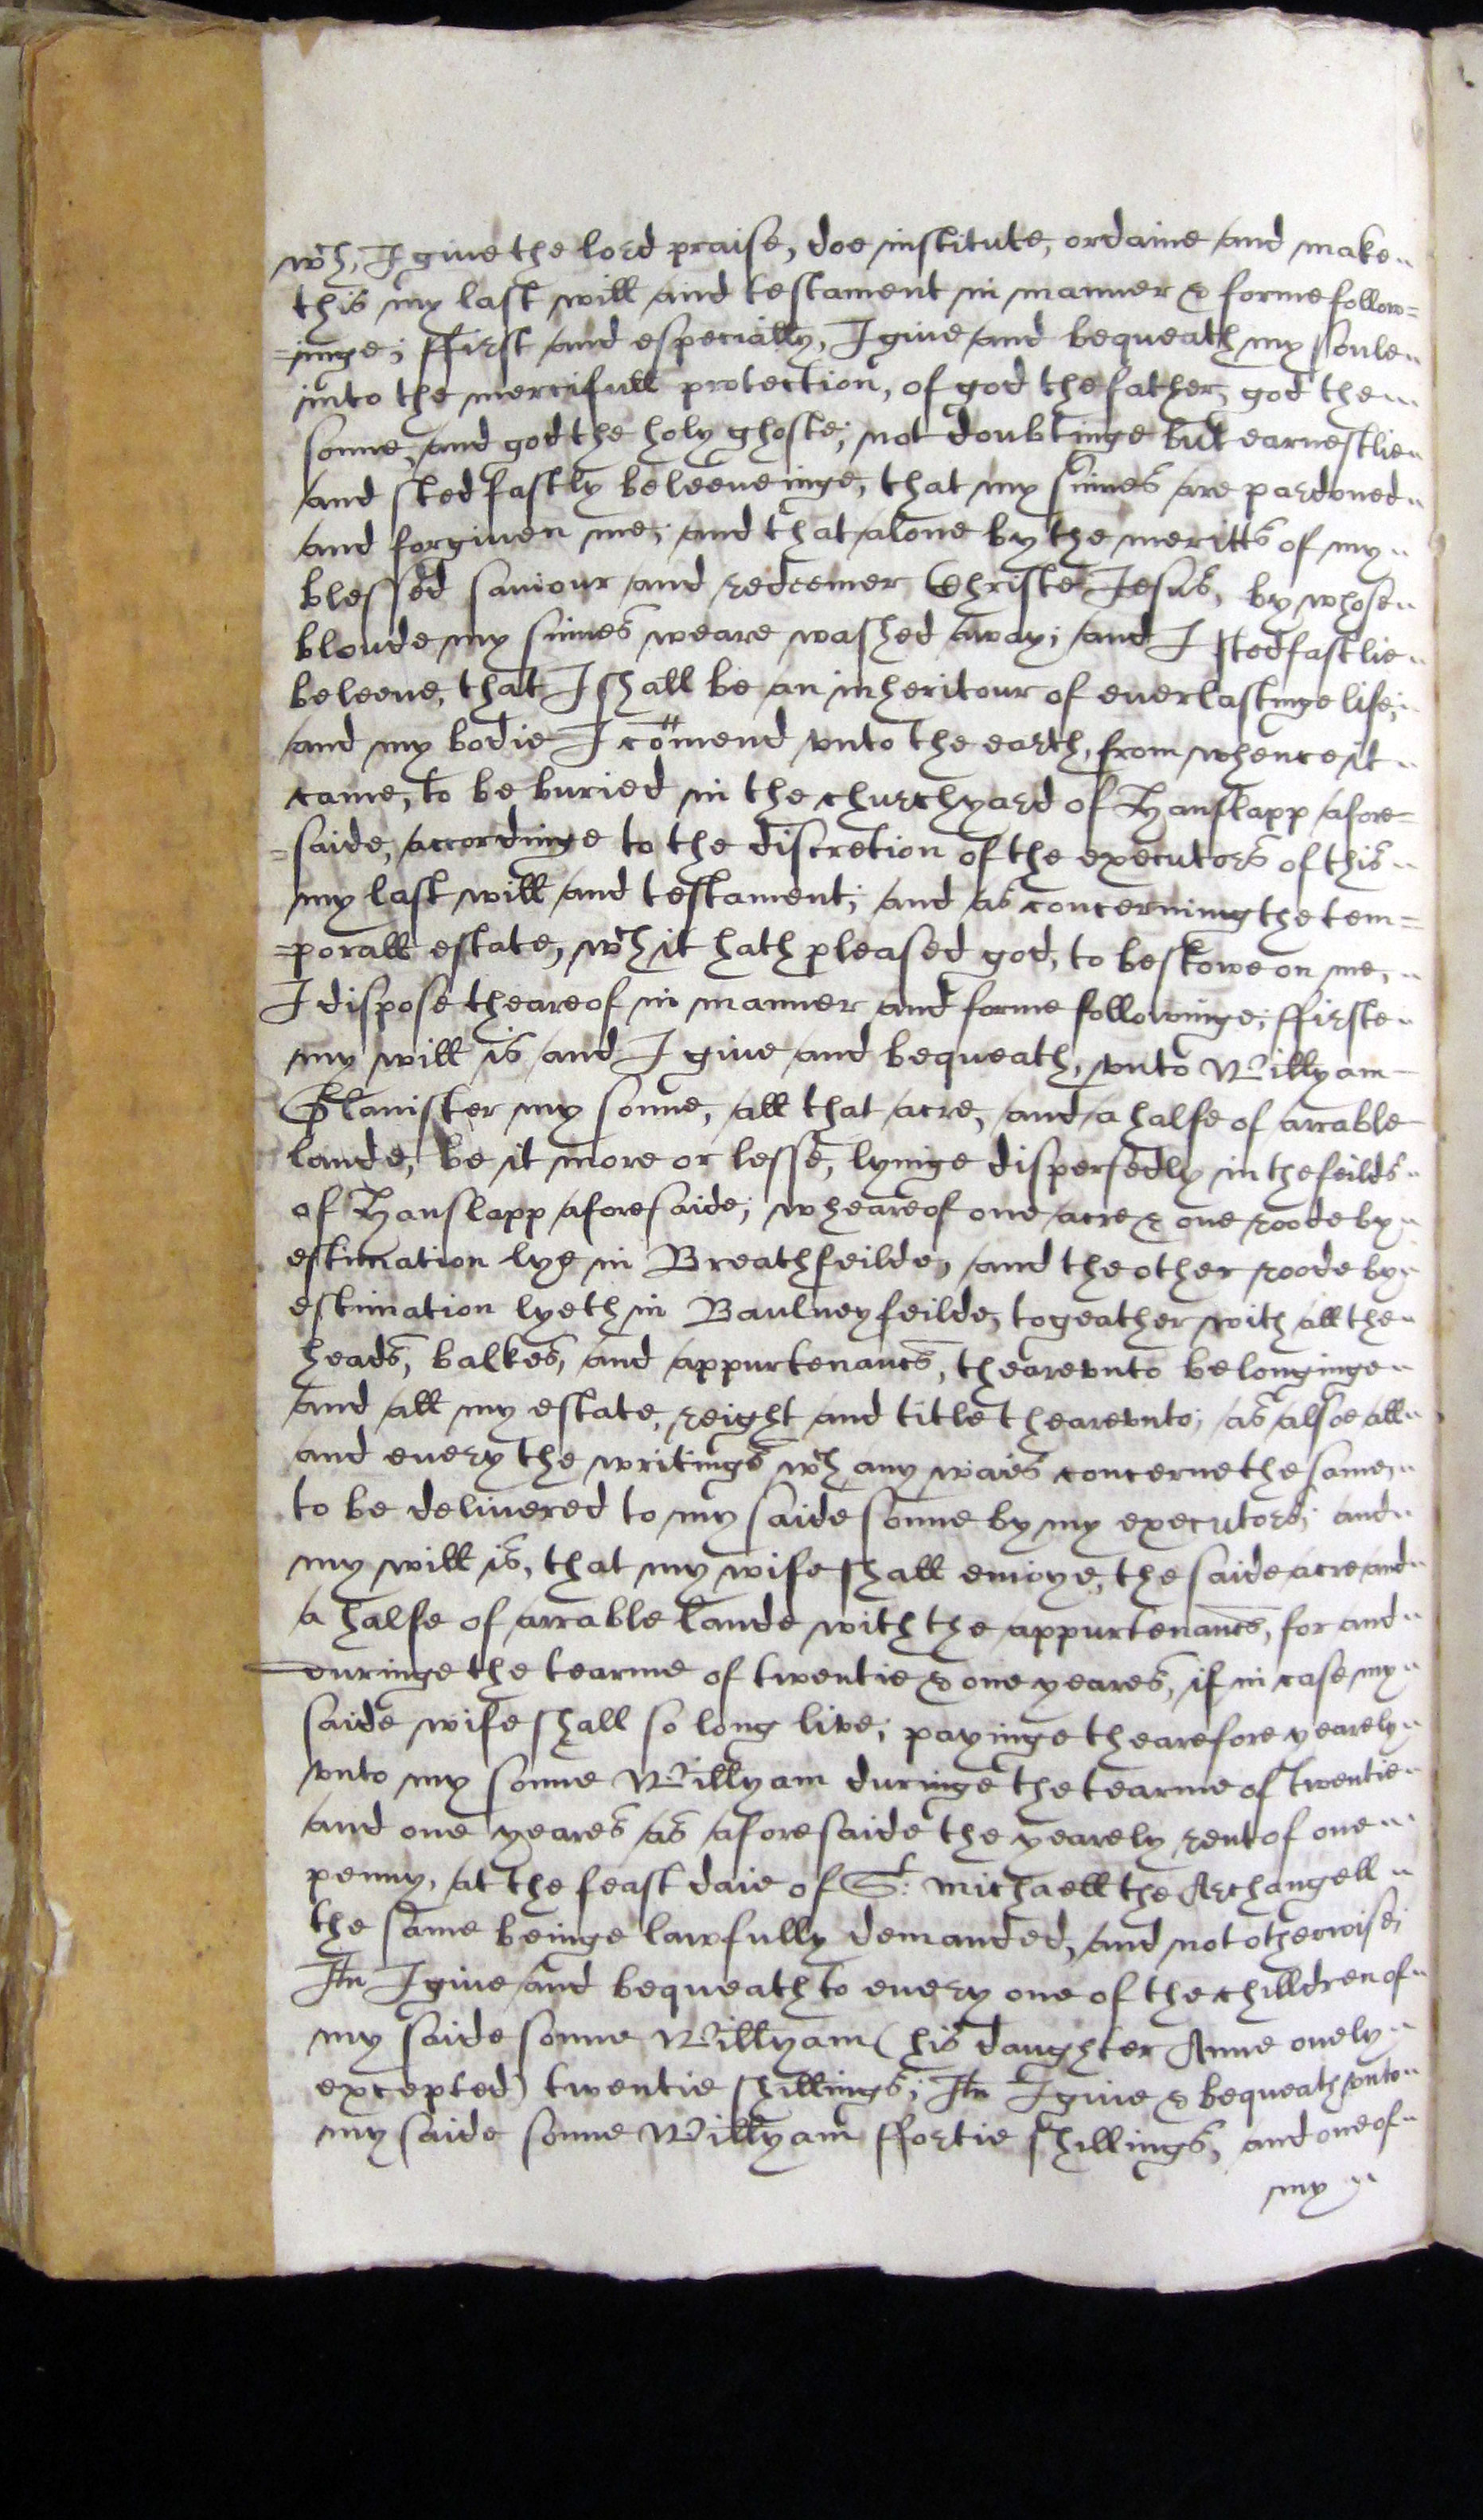 wch, I give the lord praise, doe institute, ordaine and make
this my last will and testament in manner & forme follow=
=inge; ffirst and especially, I give and bequeath my soule
into the mercifull protection, of god the father, god the
sonne, and god the holy ghoste; not doubtinge but earnestlie
and stedfastly beleeveinge, that my sinnes are pardoned
and forgiven me; and that alone by the meritts of my
blessed saviour and redeemer Christe Jesus, by whose
bloude my sinnes weare washed away; and I stedfastlie
beleeve, that I shall be an inheritour of everlastinge life;
and my bodie I com̄end vnto the earth, from whence it
came, to be buried in the churchyard of Hanslapp afore=
=saide, accordinge to the discretion of the executors of this
my last will and testament; and as concerning the tem=
=porall estate, wch it hath pleased god, to bestowe on me,
I dispose theareof in manner and forme followinge; ffirste
my will is and I give and bequeath, vnto Willyam
Glanister my sonne, all that acre, and a halfe of arrable
lande, be it more or lesse, lyinge dispersedly in the feilds
of Hanslapp aforesaide; wheareof one acre & one roode by
estimation lye in Breathfeilde, and the other roode by
estimation lyeth in Baulneyfeilde, togeather with all the
heads, balkes, and appurtenancs, thearevnto belonginge
and all my estate, reight and title thearevnto; as alsoe all
and every the writings wch any waies concerne the same,
to be delivered to my saide sonne by my executors; and
my will is, that my wife shall enioye, the saide acre and
a halfe of arrable lande with the appurtenancs, for and
duringe the tearme of twentie & one yeares, if in case my
saide wife shall so long live; payinge thearefore yearely
vnto my sonne Willyam duringe the tearme of twentie
and one yeares as aforesaide the yearely rent of one
penny, at the feast daie of St: Michaell the Archangell
the same beinge lawfully demanded, and not otherwise;
Itm I give and bequeath to every one of the chilldren of
my saide sonne Willyam (his daughter Anne onely
excepted) twentie shillings; Itm I give & bequeath vnto
my saide sonne Willyam ffortie shillings, and one of
my